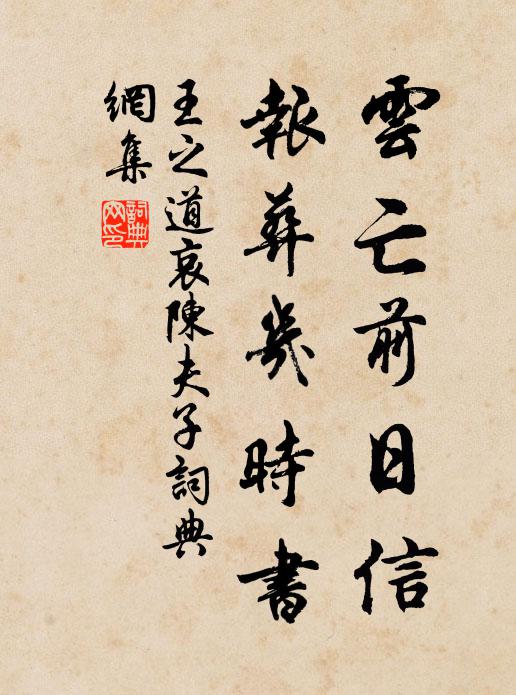 雲亡前日信
報葬幾時書
王之道哀陳夫子詞典
網集
詞典
网印